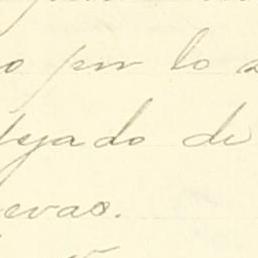 o por lo
tejado de
evas.